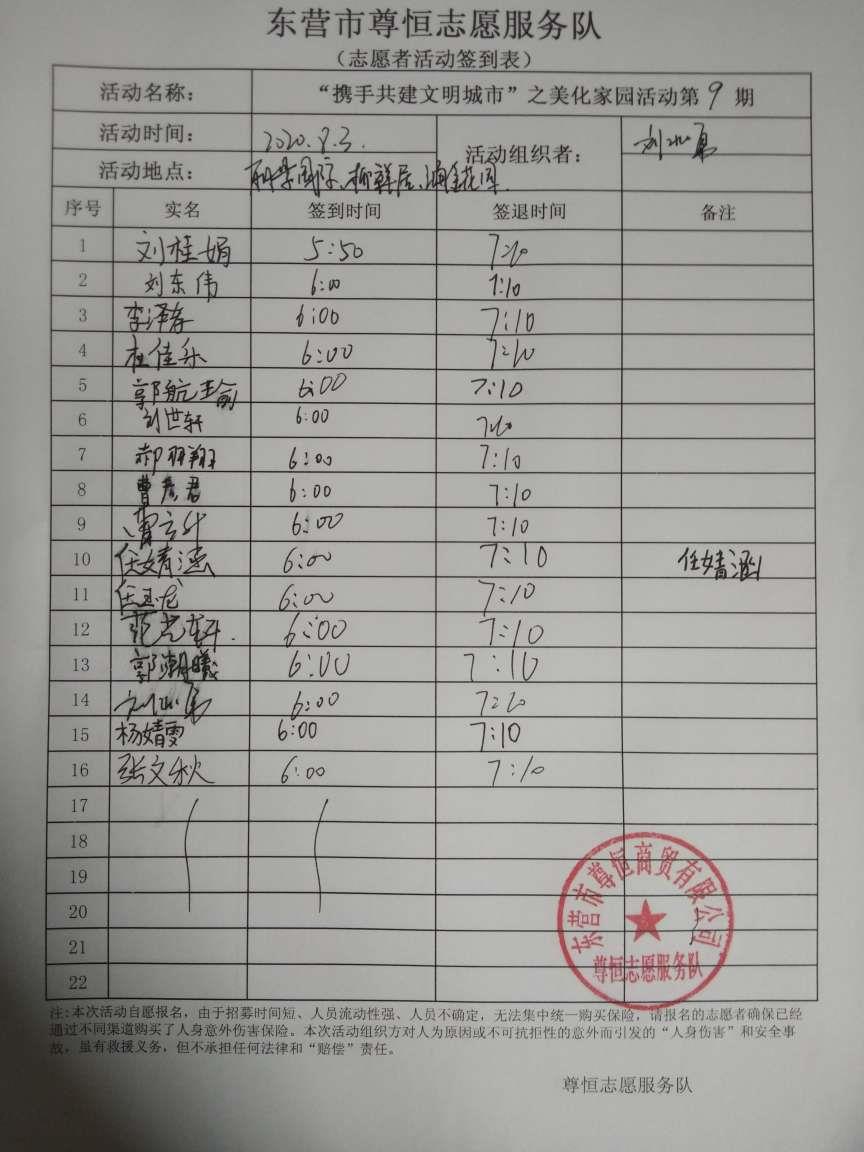 东营市尊恒志愿服务队
（志愿者活动签到表）
活动名称： “携手共建文明城市”之美化家园活动第9期
活动时间： 2020.8.3. 活动组织者：
活动地点：
序号 实名 签到时间 签退时间 备注
1 刘桂娟 5:50 7:10
2 刘东伟 6:00 7:10
3 李泽存 6:00 7:10
4 杜佳乐 6:00 7:10
5 郭航 6:00 7:10
6 刘世轩 6:00 7:10
7 郝羽翔 6:00 7:10
8 曹彦君 6:00 7:10
9 6:00 7:10
10 任婧涵 6:00 7:10 任婧涵
11 任玉龙 6:00 7:10
12 范光轩. 6:00 7:10
13 郭潮曦 6:00 7:10
14 6:00 7:10
15 杨婧雯 6:00 7:10
16 张文秋 6:00 7:10
17
18
19
20
21
22
东营市尊恒商贸有限公司
尊恒志愿服务队
注:本次活动自愿报名，由于招募时间短、人员流动性强、人员不确定，无法集中统一购买保险，请报名的志愿者确保已经
通过不同渠道购买了人身意外伤害保险。本次活动组织方对人为原因或不可抗拒性的意外而引发的“人身伤害”和安全事
故，虽有救援义务，但不承担任何法律和“赔偿”责任。
尊恒志愿服务队